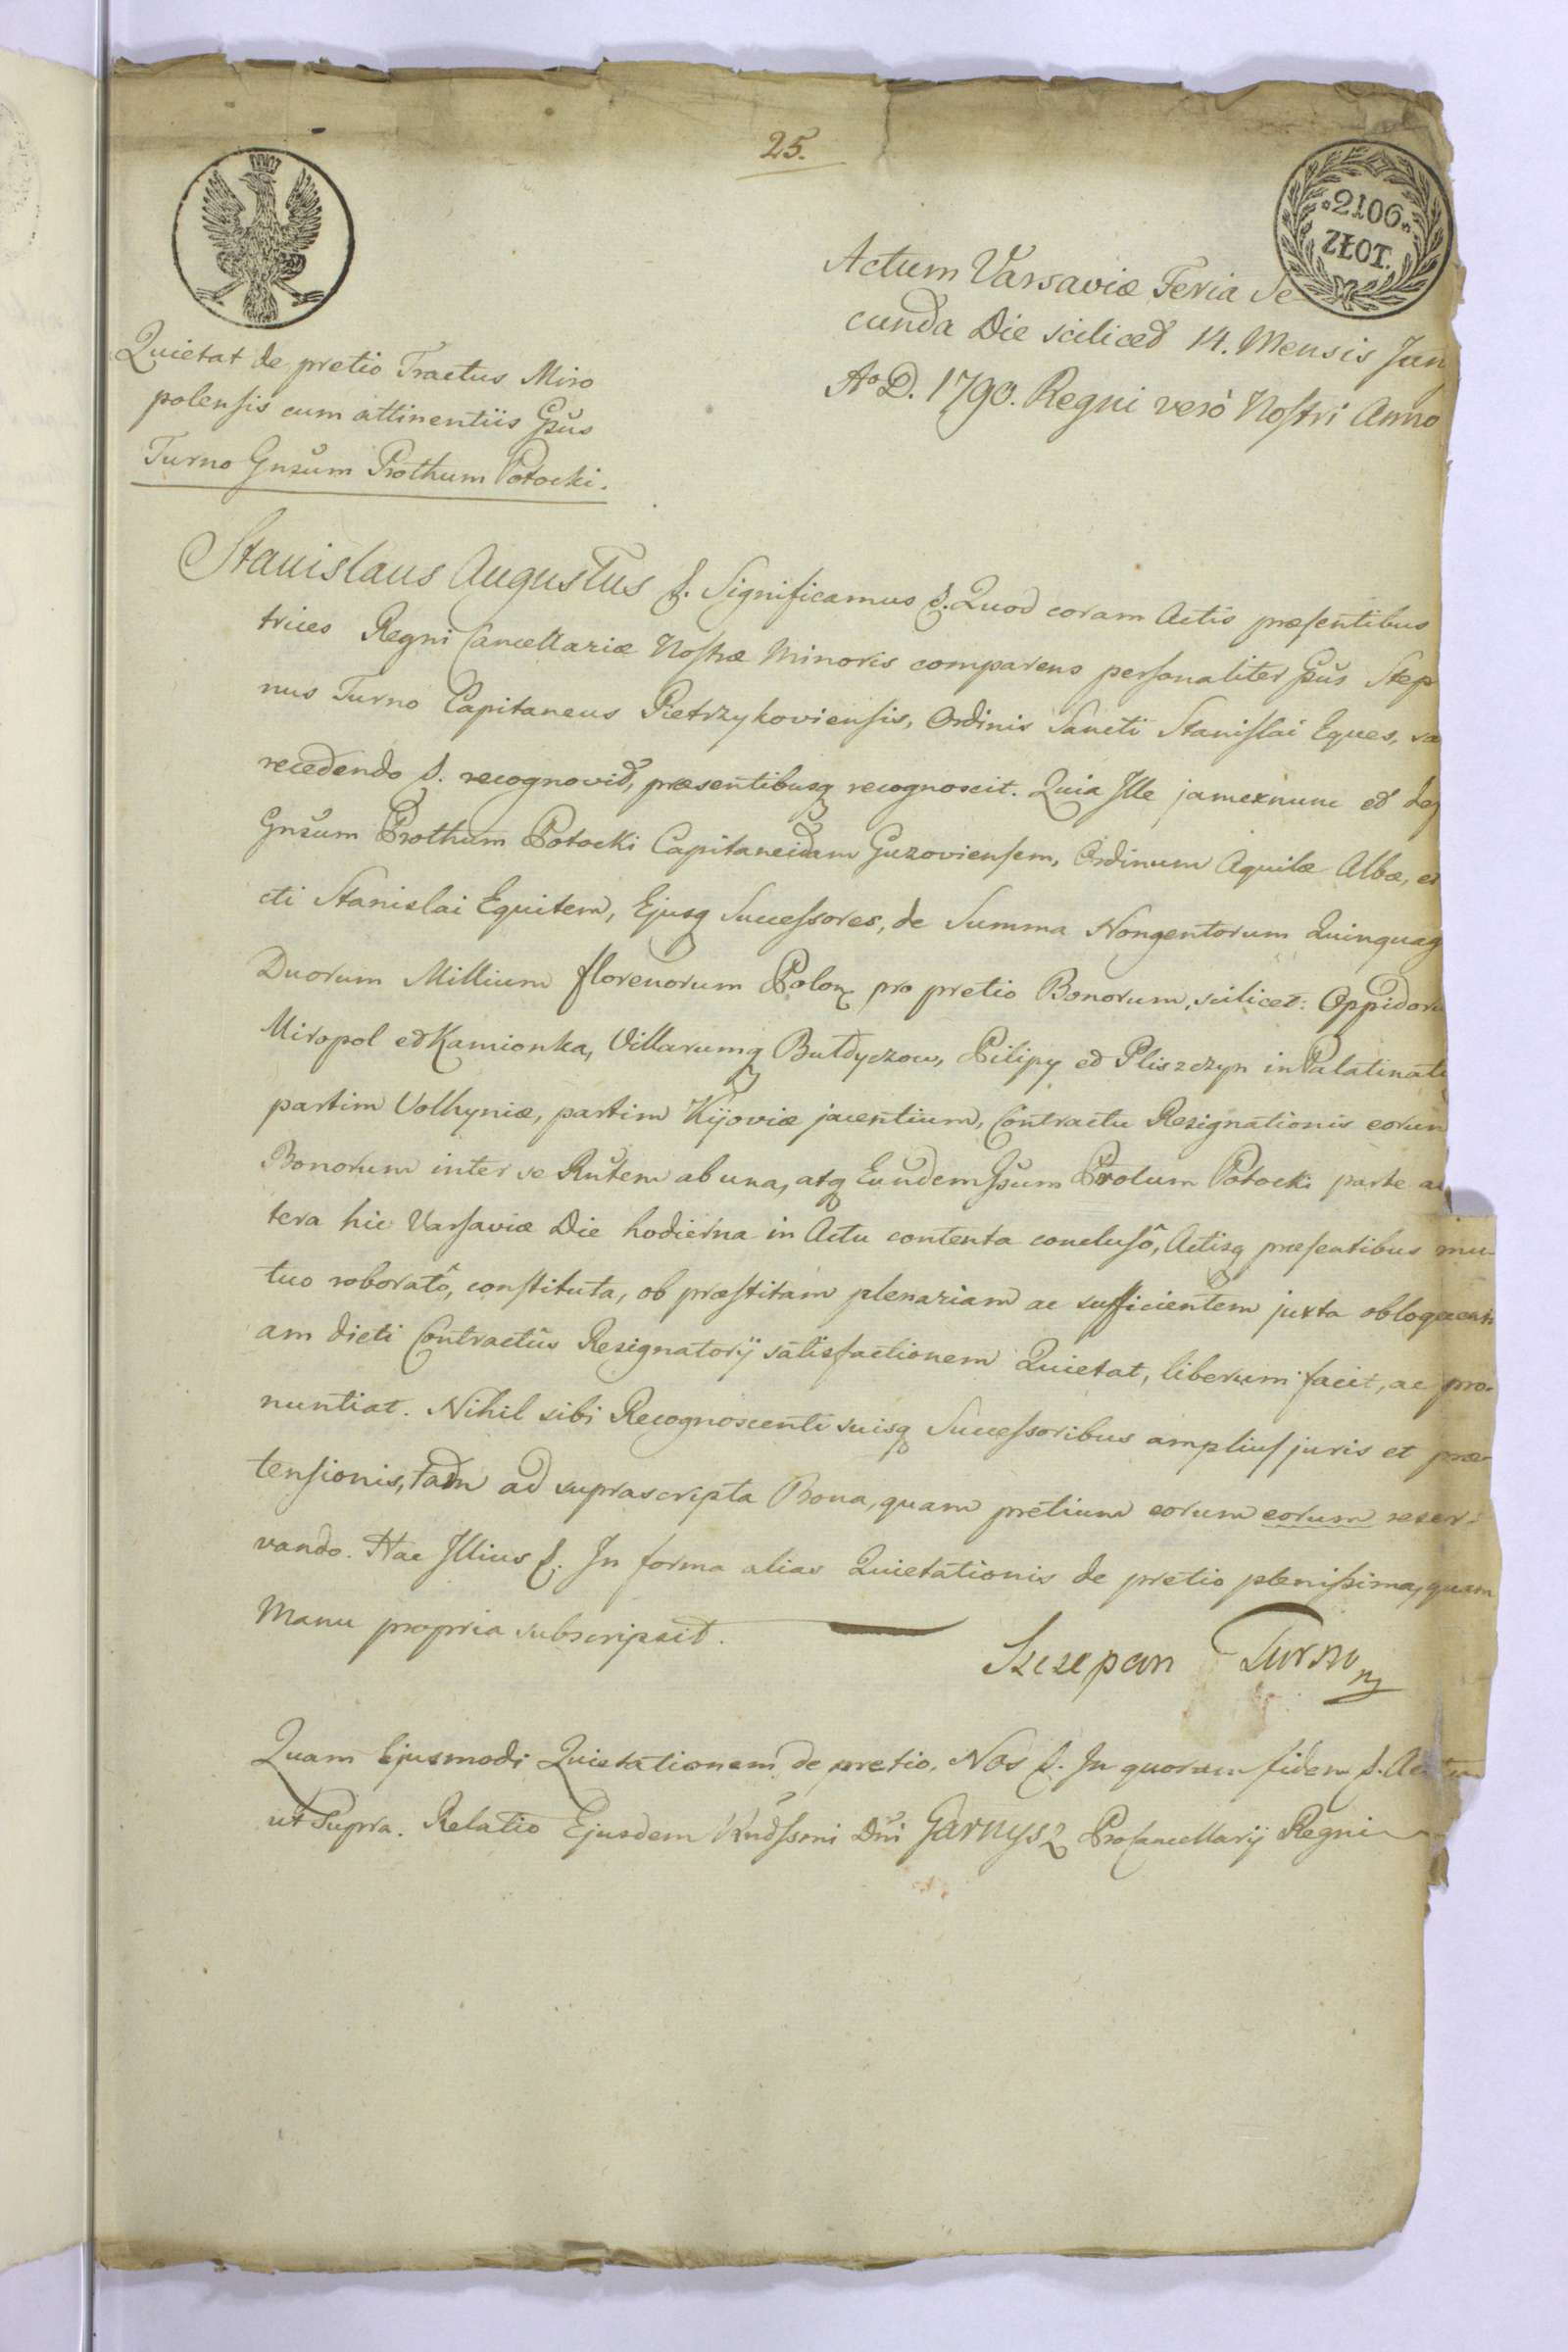 25.
2106
ZŁOT.
Actum Varsaviæ Feria Se
cunda Die sciliced 14. Mensis Jan
Ao D. 1790. Regni verò Nostri Anno
Quietat de pretio Tractus Miro
polensis cum attinentiis Gsus
Turno Gnsum Prothum Potocki.
Stanislaus Augustus &. Significamus &. Quod coram Actis præsentibus
trices Regni Cancellariæ Nostræ Minoris comparens personaliter Gsus Step
nus Turno Capitaneus Pietrzykoviensis, Ordinis Sancti Stanislai Eques, sa
recedendo &. recognovid, præsentibusq recognoscit. Quia Ille jamexnunc ed de
Gnsum Prothum Potocki Capitaneidam Guzoviensem, Ordinum Aquilæ Albæ, et
cti Stanislai Equitem, Ejusq Successores, de Summa Nongentorum Quinquag
Duorum Millium florenorum Polon pro pretio Bonorum, scilicet: Oppidoru
Miropol ed Kamionka, Villarumq Bułdyczow, Pilipy ed Pliszczyn in Palatinatu
partim Volhyniæ, partim Kijoviæ jacentium, Contractu Resignationis eorun
Bonorum inter se Rñtem ab una, atq Eundem Gsum Protum Potocki parte al
tera hic Varsaviæ Die hodierna in Actu contenta conclusô, Actisq præsentibus mu-
tuo roboratô, constituta, ob præstitam plenariam ac sufficientem juxta obloquenti
am dicti Contractûs Resignatorij satisfactionem Quietat, liberum facit, ac pro-
nuntiat. Nihil sibi Recognoscenti suisq Successoribus amplius juris et præ-
tensionis, tam ad suprascripta Bona, quam pretium eorum eorum reser-
vando. Hac Illius &. In forma alias Quietationis de pretio plenissima, quam
Manu propria subscripsit.
Szczepan Turno
Quam Ejusmodi Quietationem de pretio. Nos &. In quorum fidem &. Actu
ut Supra. Relatio Ejusdem Rndssmi Dni Garnysz Procancellarij Regni